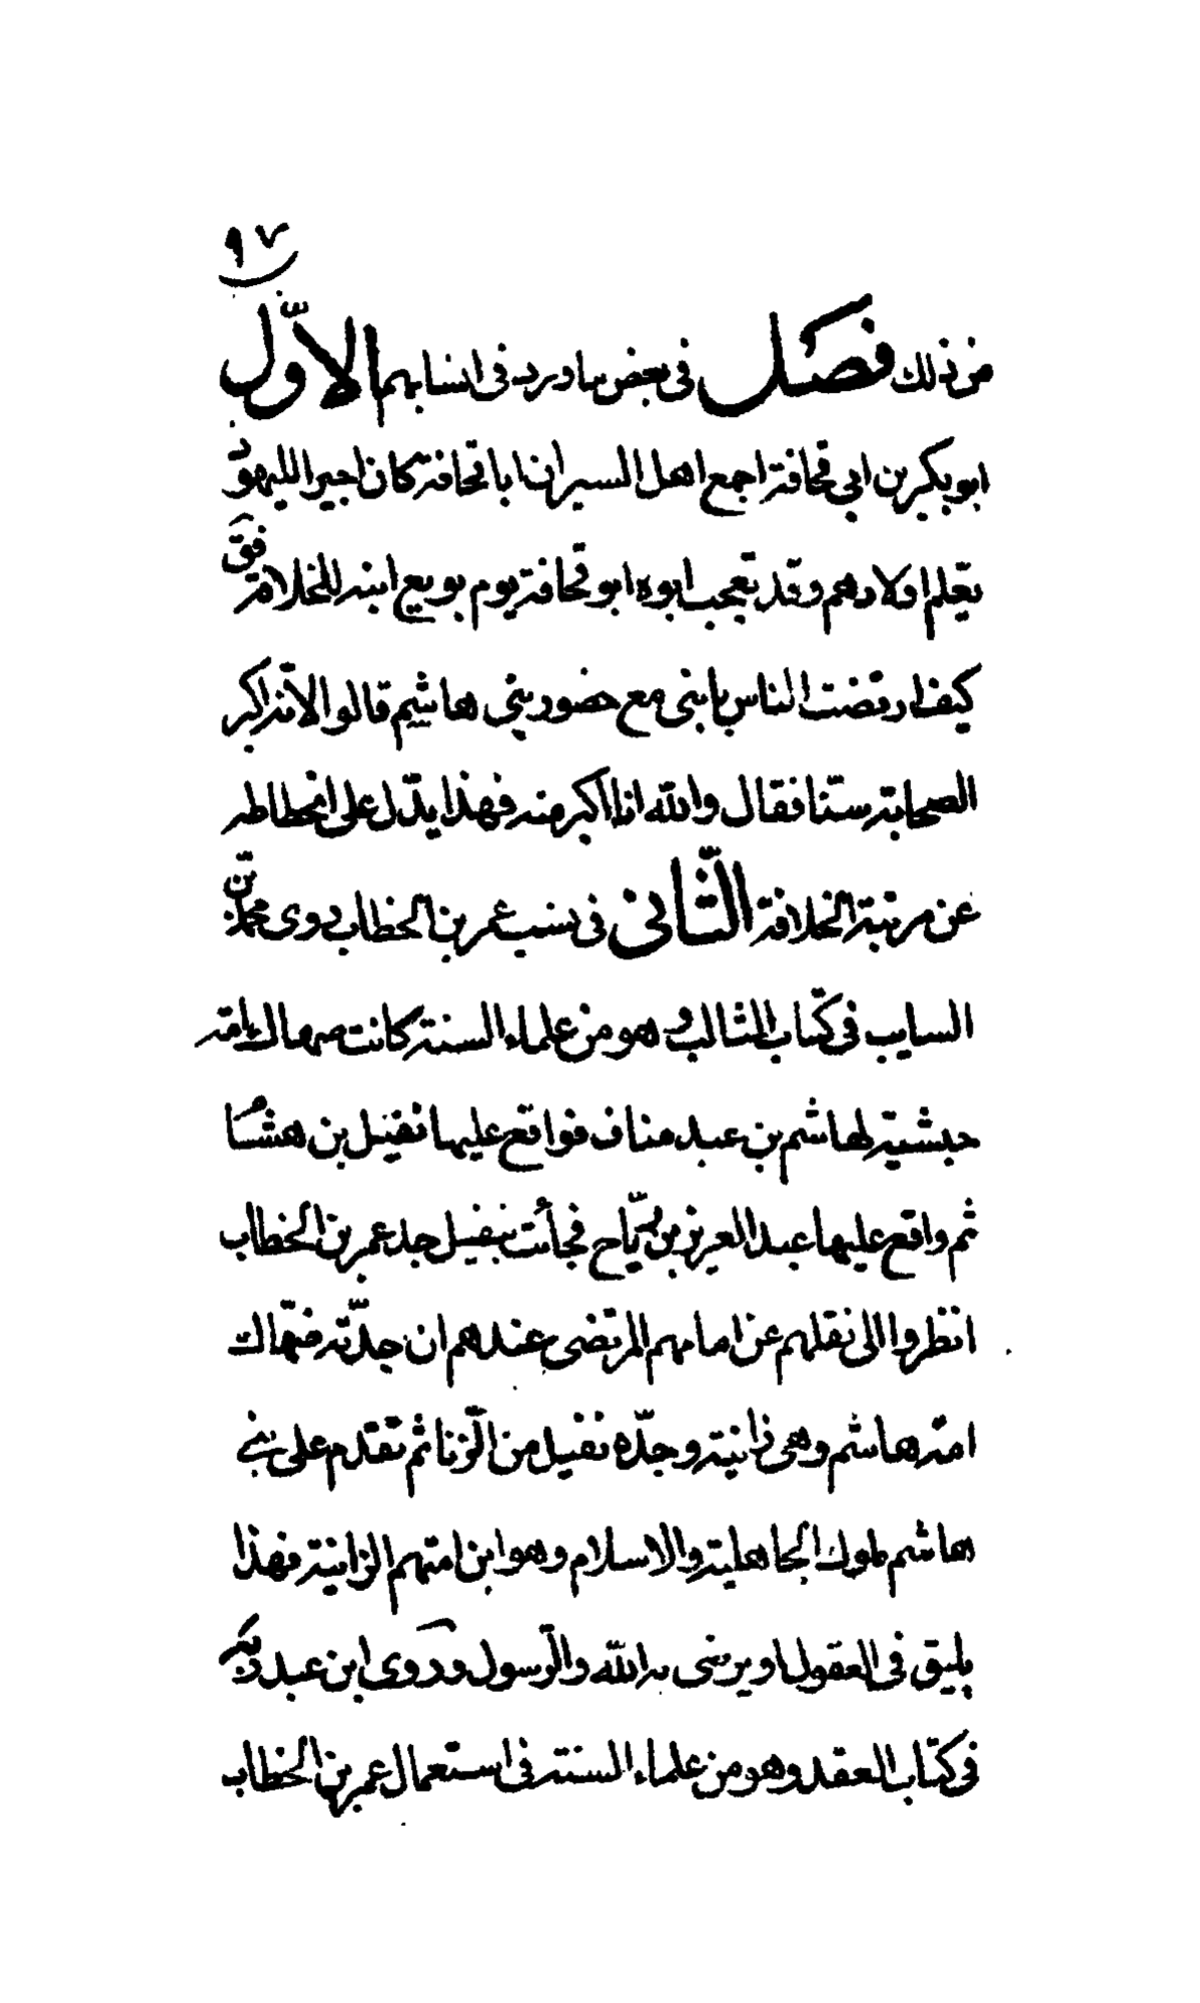 ٩٧
من ذلك فصل فى بعض ما ورد فى انسابهم الاوّل
ابو بكر بن ابى قحافة اجمع اهل السير ان ابا قحافة كان اجيرا لليهود
يعلم اولادهم وقد تعجب ابوه ابو قحافة يوم بويع ابنه للخلافة فق
كيف ارتضت الناس بابنى مع حضور بنى هاشم قالوا لانه اكبر
الصحابة سنّا فقال والله انا اكبر منه فهذا يدّل على انحطاطه
عن مرتبة الخلافة الثّانى فى نسب عمر بن الخطاب روى محمد بن
السايب فى كتاب المثالب وهو من علماء السنة كانت صهاك امة
حبشية لهاشم بن عبد مناف فواقع عليها نفيل بن هشام
ثم واقع عليها عبد العزيز بن رياح فجائت بنفيل جد عمر بن الخطاب
انظروا الى نقلهم عن امامهم المرتضى عندهم ان جدّته صهاك
امة هاشم وهى زانية وجدّه نفيل من الزنا ثم تقدم على بنى
هاشم ملوك الجاهلية والاسلام وهو ابن امتهم الزانية فهذا
يليق فى العقول او يرضى به الله والرسول وروى ابن عبد ربه
فى كتاب العقد وهو من علماء السنة فى استعمال عمر بن الخطاب